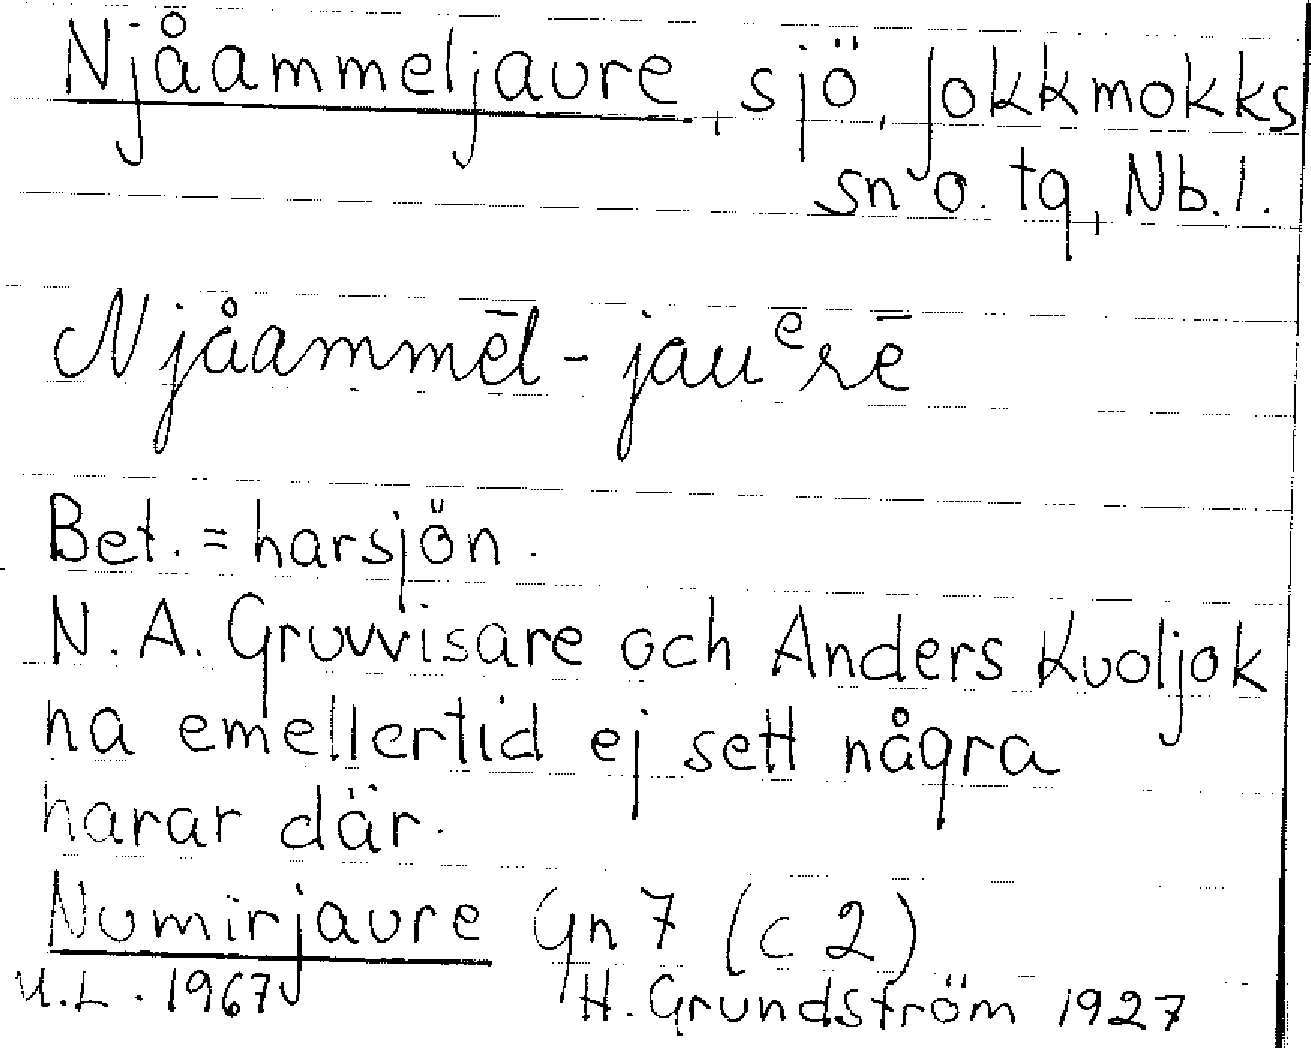 Njåammeljaure, sjö, Jokkmokks
sn o. tg, Nb. l.
Njåammēl - jauᵉrē
Bet. = harsjön.
N. A. Gruvvisare och Anders Kuoljok
ha emellertid ej sett några
harar där.
Numirjaure Gn 7 (c 2)
U.L. 1967 H. Grundström 1927